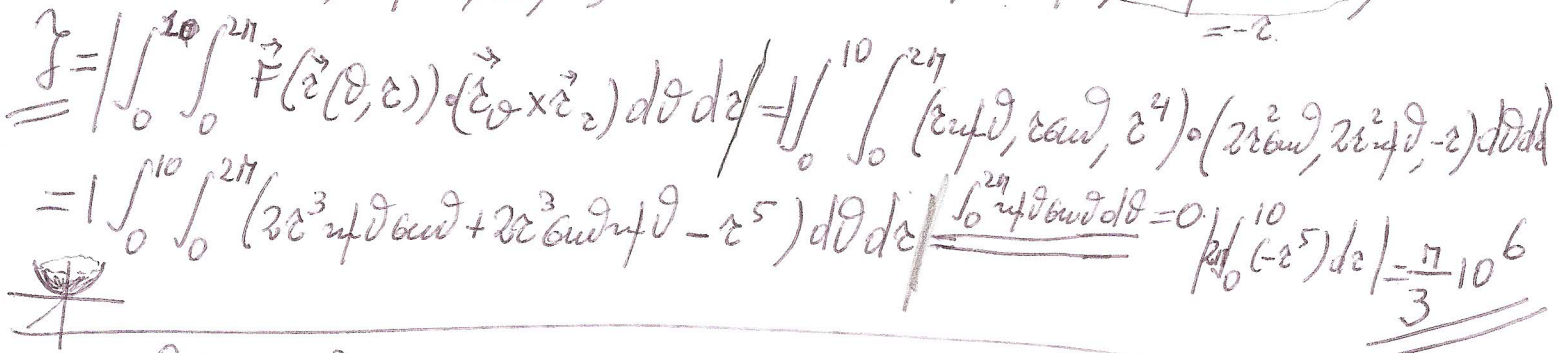 = -r.
J = |∫₀¹⁰ ∫₀²π F⃗(r⃗(ϑ,r))·(r⃗_ϑ × r⃗_r) dϑ dr| = |∫₀¹⁰ ∫₀²π (r sinϑ, r cosϑ, r⁴)·(2r² cosϑ, 2r² sinϑ, -r) dϑ dr|
= |∫₀¹⁰ ∫₀²π (2r³ sinϑ cosϑ + 2r³ cosϑ sinϑ - r⁵) dϑ dr| ∫₀²π sinϑ cosϑ dϑ = 0. |2π ∫₀¹⁰ (-r⁵) dr| = π/3 10⁶